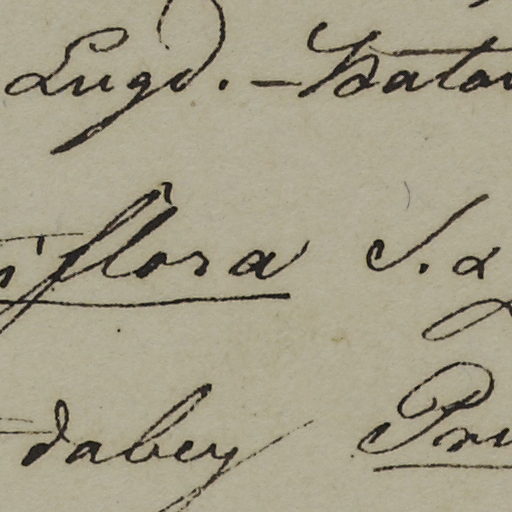 Lugd.-Batav
iflora S. &
dabey Pri